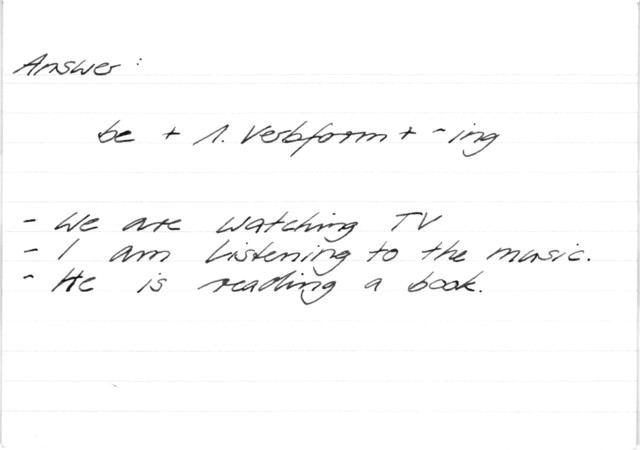 Answer:
be + 1. Verbform + -ing
- We are watching TV
- I am listening to the music.
- He is reading a book.